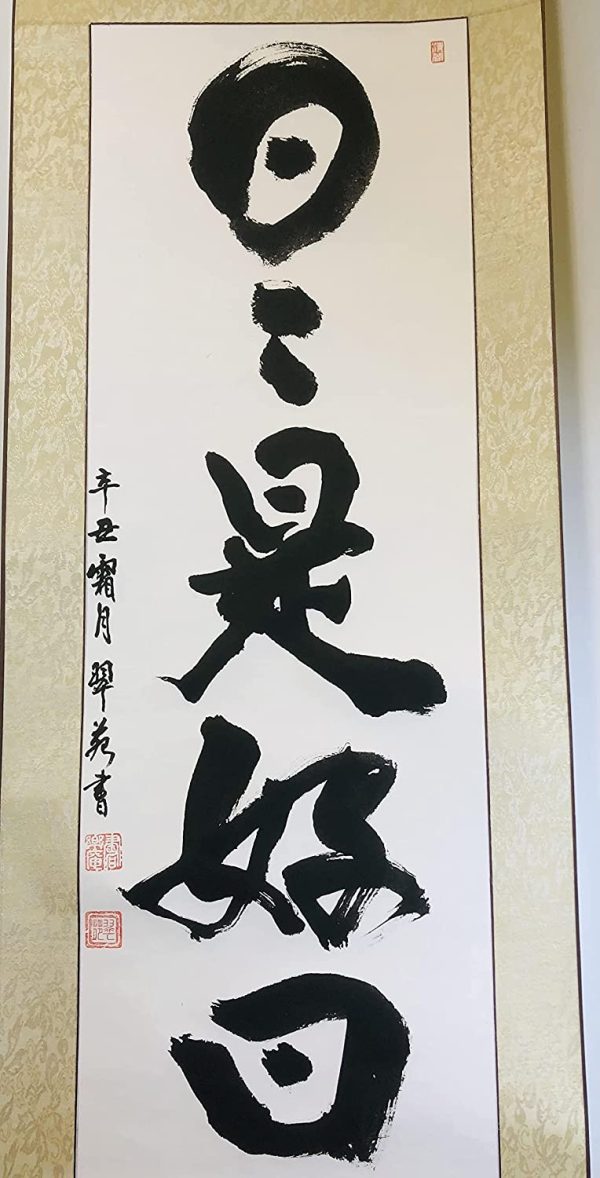 日〻是好日
辛丑霜月翠苑書